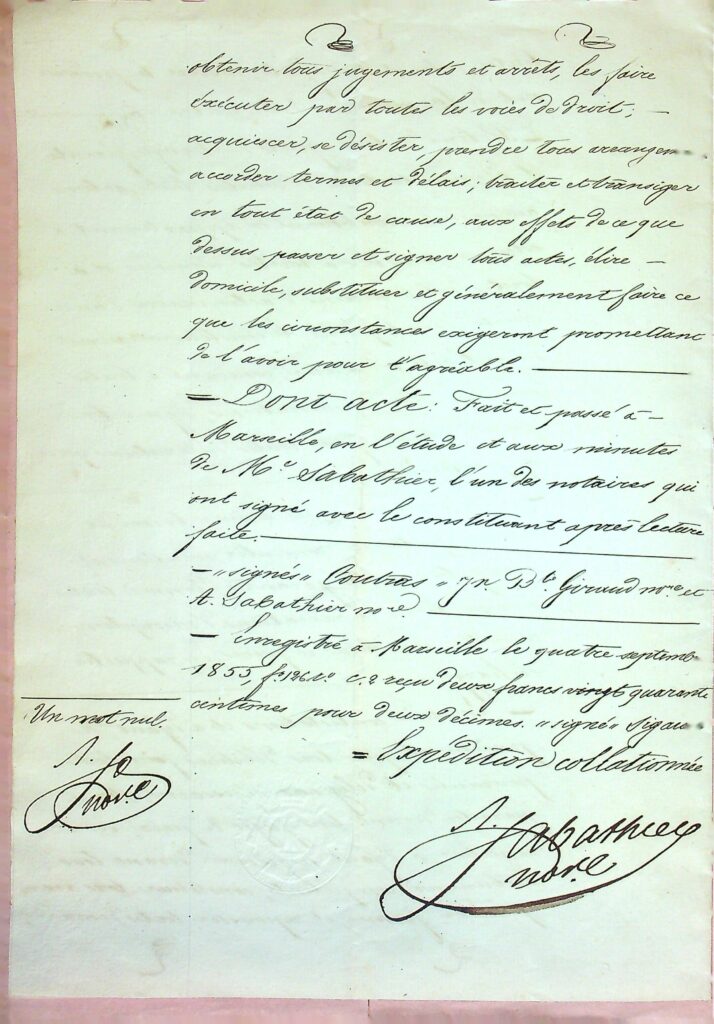 obtenir tous jugements et arrêts, les faire
exécuter par toutes les voies de droit; —
acquiescer, se désister, prendre tous arrangem
accorder termes et délais; traiter et transiger
en tout état de cause, aux effets de ce que
dessus passer et signer tous actes, élire —
domicile, substituer et généralement faire ce
que les circonstances exigeront promettant
de l'avoir pour t'agréable. —
= Dont acte: Fait et passé à —
Marseille, en l'étude et aux minutes
de Me Sabathier, l'un des notaires qui
ont signé avec le constituant après lecture
faite. —
— "signés" Coutras " Jn. Bte Giraud nore et
A. Sabathier nore. —
— Enregistré à Marseille le quatre septemb
1855, fo 126 vo c. 2 reçu deux francs vingt quarante
centimes pour deux décimes. "signé" Sigau
= Expédition collationnée
Un mot nul.
A. Sa
nore
A. Sabathier
nore